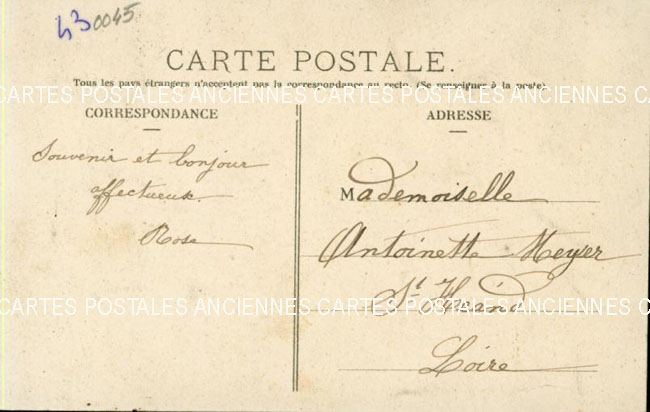 43 0045
CARTE POSTALE.
Tous les pays étrangers n'acceptent pas la correspondance au recto. (Se renseigner à la poste)
CARTES POSTALES ANCIENNES CARTES POSTALES ANCIENNES
CORRESPONDANCE
Souvenir et bonjour
affectueux.
Rose
ADRESSE
Mademoiselle
Antoinette Meyer
St Héand
Loire
CARTES POSTALES ANCIENNES CARTES POSTALES ANCIENNES